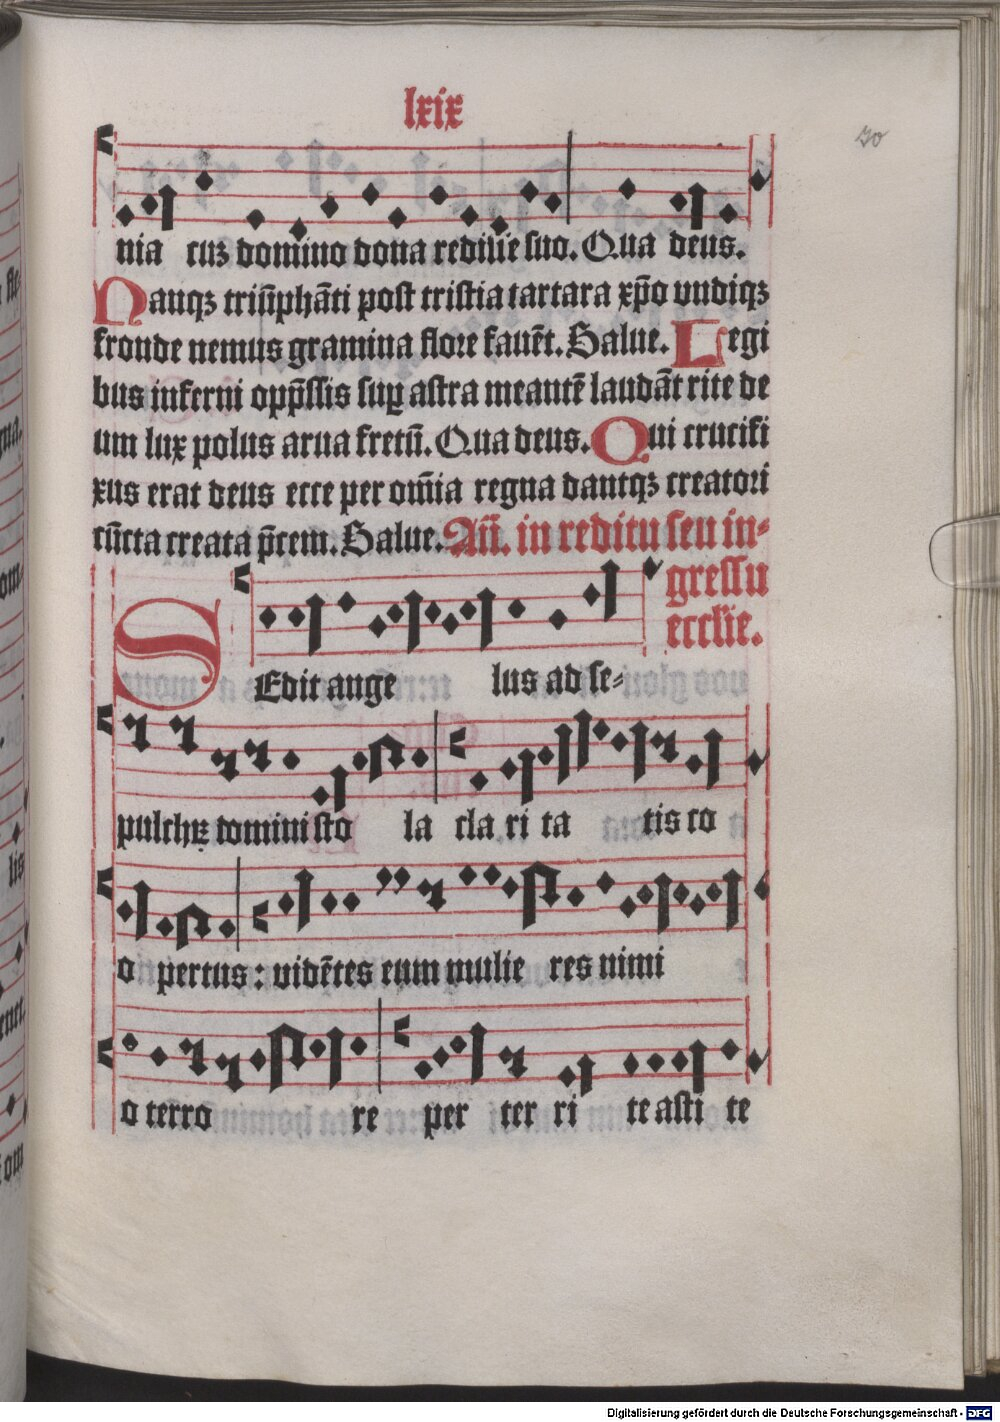 lxix
70
nia cuʒ domino dona rediuie suo. Qua deus.
Nanqʒ triũphãti post tristia tartara xp̄o vndiqʒ
fronde nemus gramina flore fauẽt. Salue. Legi
bus inferni opp̄ssis sup̱ astra meantẽ laudãt rite de
um lux polus arua fretũ. Qua deus. Qui crucifi
xus erat deus ecce per om̄ia regna dantqʒ creatori
cũcta creata p̄cem. Salue. Añ. in reditu seu in-
gressu
eccl̄ie.
SEdit ange lus ad se-
pulchꝝ domini sto la cla ri ta tis co
o pertus : vidẽtes eum mulie res nimi
o terro re per ter ri te asti te
Digitalisierung gefördert durch die Deutsche Forschungsgemeinschaft - DFG